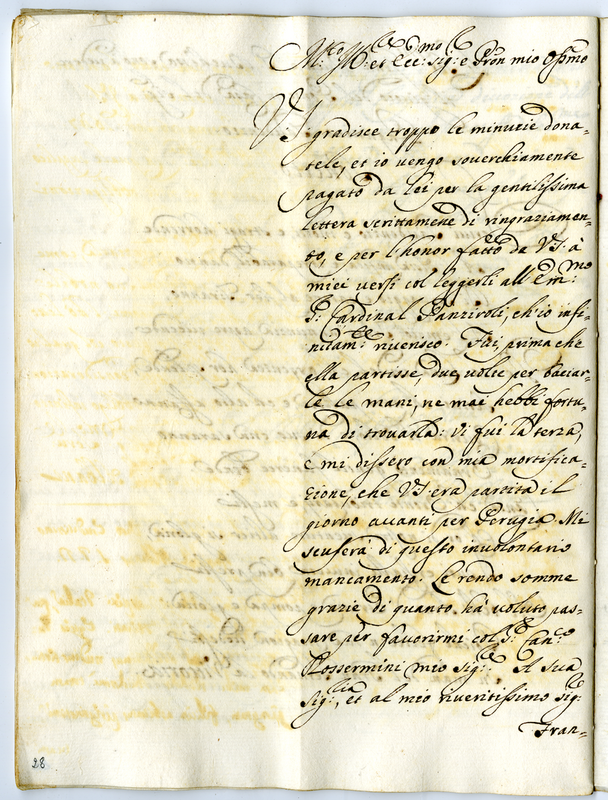 M.to Ill.re et Ecc.mo Sig.re e Pron mio Oss.mo
VS gradisce troppo le minutie dona-
tele, et io vengo soverchiamente
pagato da lei per la gentilissima
lettera scrittamene di ringraziamen-
to, e per l'honor fatto da VS. à
miei versi col leggerli all'Em.mo
S.r Cardinal Panziroli, ch'io infi-
nitam.te riverisco. Fui, prima che
ella partisse, due volte per baciar-
le le mani, ne mai hebbi fortu-
na di trovarla: vi fui la terza,
e mi dissero con mia mortifica-
zione, che VS era partita il
giorno avanti per Perugia. Mi
scuserà di questo involontario
mancamento. Le rendo somme
grazie di quanto ha voluto pas-
sare per favorirmi col S.r Can.co
Rossermini mio Sig.re A sua
Sig.ria, et al mio riveritissimo Sig.re
Fran-
28